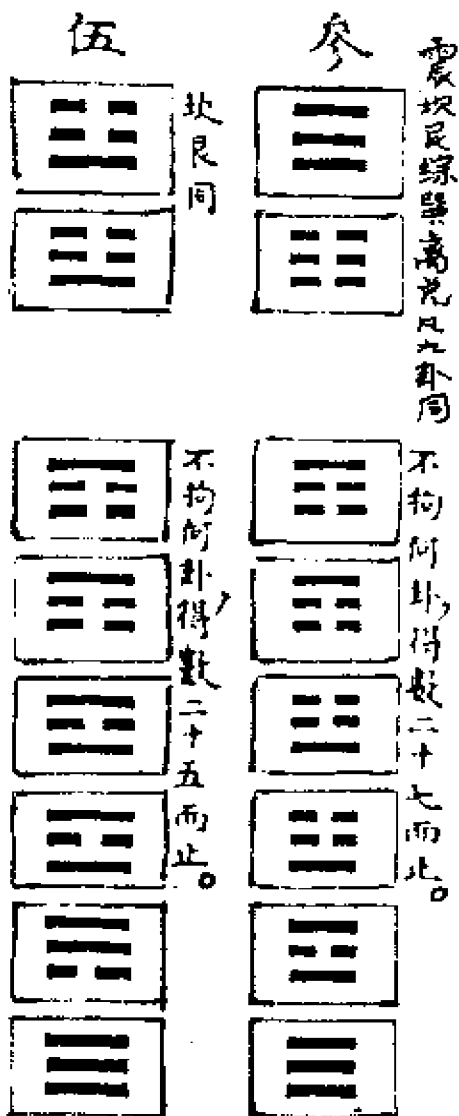 震坎艮綜巽離兌凡六卦同
參
不拘何卦,得數二十七而止。
坎艮同
伍
不拘何卦得,數二十五而止。